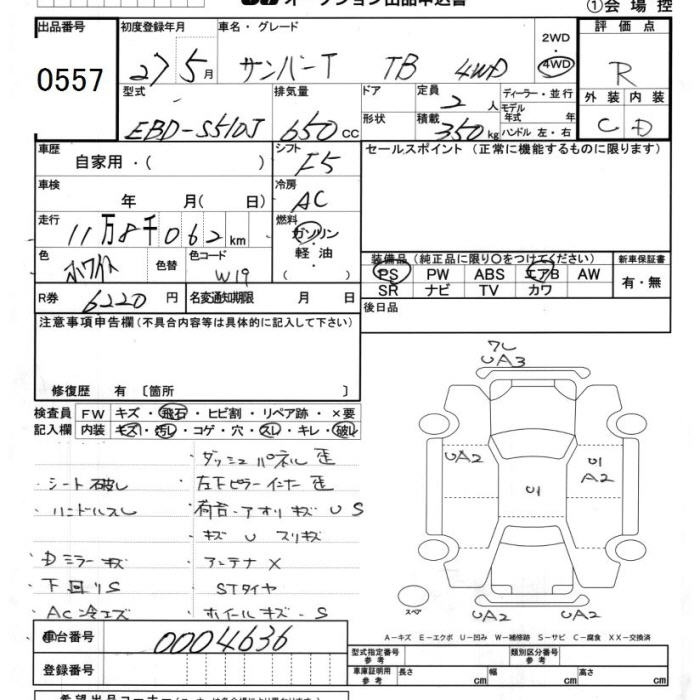 オークション出品申込書
①会場控
出品番号 0557
初度登録年月 27 5月
車名・グレード サンバーT TB 4WD
2WD・4WD
評価点 R
外装 内装 C D
型式 EBD-S510J
排気量 650cc
ドア
形状
定員 2人
積載 350kg
ディーラー・並行
モデル年式 年
ハンドル 左・右
車歴 自家用・( )
シフト F5
セールスポイント (正常に機能するものに限ります)
車検 年 月( 日)
冷房 AC
走行 11万8千062km
燃料 ガソリン 軽油 ( )
色 ホワイト 色替 色コード W19
装備品 (純正品に限り〇をつけてください)
PS PW ABS エアB AW
SR ナビ TV カワ
新車保証書 有・無
R券 6220円
名変通知期限 月 日
後日品
注意事項申告欄 (不具合内容等は具体的に記入して下さい)
修復歴 有 〔箇所 〕
検査員記入欄
FW キズ・飛石・ヒビ割・リペア跡・×要
内装 キズ・汚レ・コゲ・穴・スレ・キレ・破レ
・ダッシュパネル歪
・シート破レ ・左下ピラーインナー歪
・ハンドルスレ ・荷台・アオリキズUS
・キズUスリキズ
・Dミラーキズ ・アンテナX
・下回りS STタイヤ
・AC冷エズ ・ホイールキズ・S
フレ
UA3
UA2
U1
U1
A2
スペア
UA2
UA2
A-キズ E-エクボ U-凹み W-補修跡 S-サビ C-腐食 XX-交換済
車台番号 0004636
登録番号
型式指定番号 参考
類別区分番号 参考
車庫証明用 参考 長さ cm 幅 cm 高さ cm
希望出品コーナー